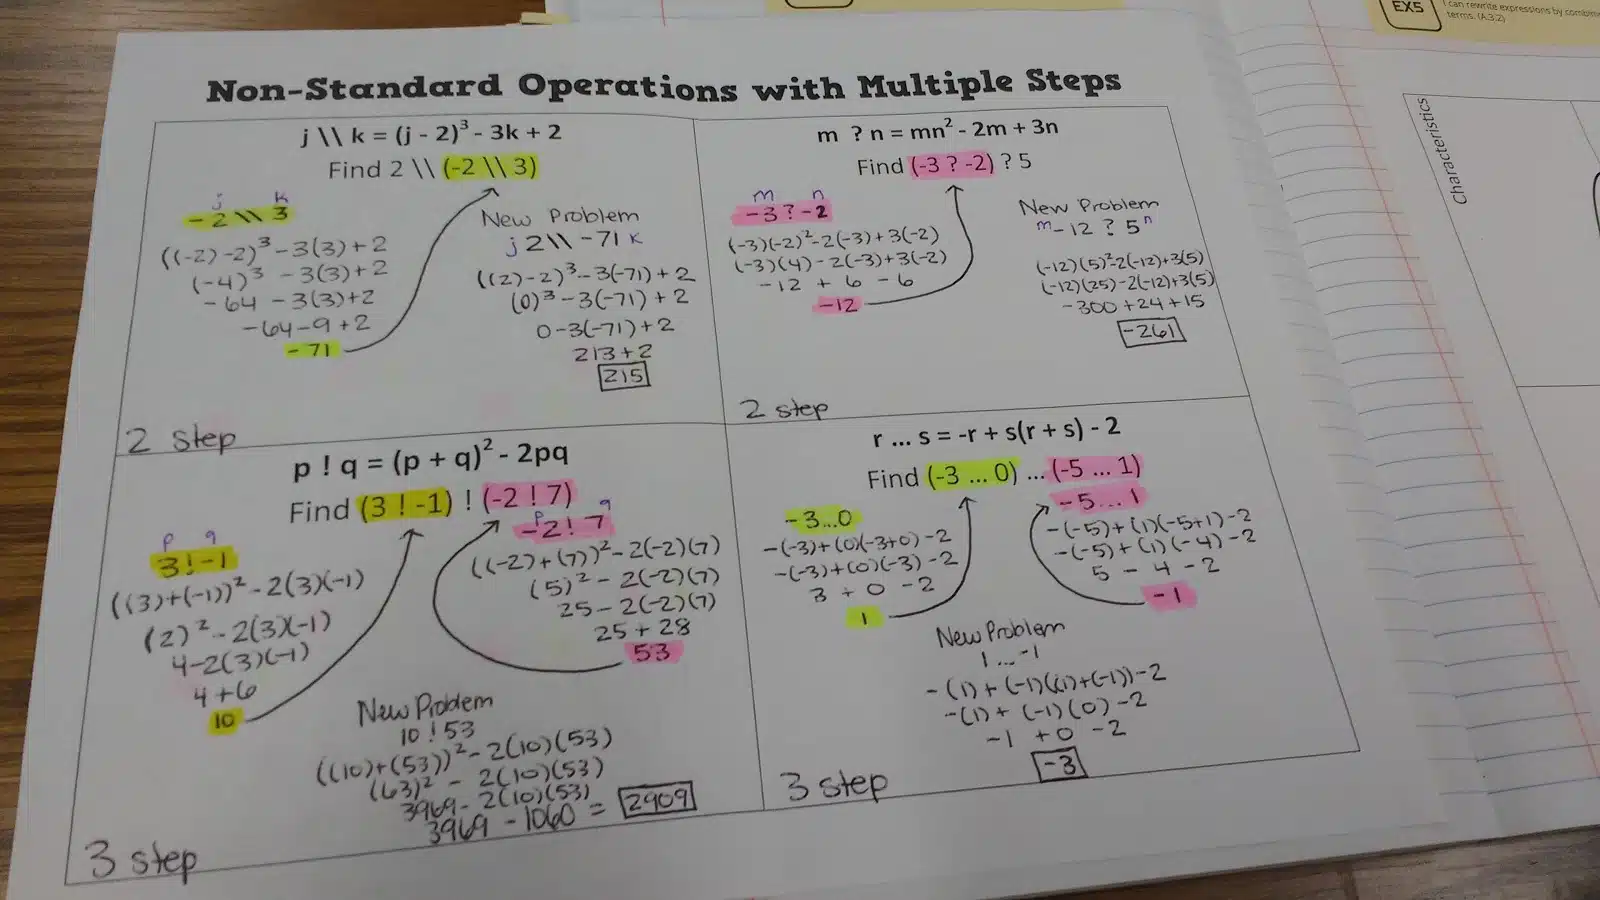 EX5
I can rewrite expressions by combin
terms. (A.3.2)
Characteristics
Non-Standard Operations with Multiple Steps
j \\ k = (j - 2)³ - 3k + 2
Find 2 \\ (-2 \\ 3)
j k
-2 \\ 3
((-2)-2)³ -3(3)+2
(-4)³ -3(3)+2
-64 -3(3)+2
-64-9+2
-71
New Problem
j 2 \\ -71 k
((2)-2)³-3(-71)+2
(0)³-3(-71)+2
0-3(-71)+2
213+2
215
2 step
m ? n = mn² - 2m + 3n
Find (-3 ? -2) ? 5
m n
-3 ? -2
(-3)(-2)²-2(-3)+3(-2)
(-3)(4)-2(-3)+3(-2)
-12 + 6 - 6
-12
New Problem
m -12 ? 5 n
(-12)(5)²-2(-12)+3(5)
(-12)(25)-2(-12)+3(5)
-300+24+15
-261
2 step
p ! q = (p + q)² - 2pq
Find (3 ! -1) ! (-2 ! 7)
p q
3!-1
((3)+(-1))²-2(3)(-1)
(2)²-2(3)(-1)
4-2(3)(-1)
4+6
10
p q
-2!7
((-2)+(7))²-2(-2)(7)
(5)²-2(-2)(7)
25-2(-2)(7)
25+28
53
New Problem
10!53
((10)+(53))²-2(10)(53)
(63)² - 2(10)(53)
3969-2(10)(53)
3969 - 1060 = 2909
3 step
r ... s = -r + s(r + s) - 2
Find (-3 ... 0) ... (-5 ... 1)
-3...0
-(-3)+(0)(-3+0)-2
-(-3)+(0)(-3)-2
3 + 0 - 2
1
-5...1
-(-5)+(1)(-5+1)-2
-(-5)+(1)(-4)-2
5 - 4 - 2
-1
New Problem
1...-1
-(1)+(-1)((1)+(-1))-2
-(1)+(-1)(0)-2
-1 +0 -2
-3
3 step